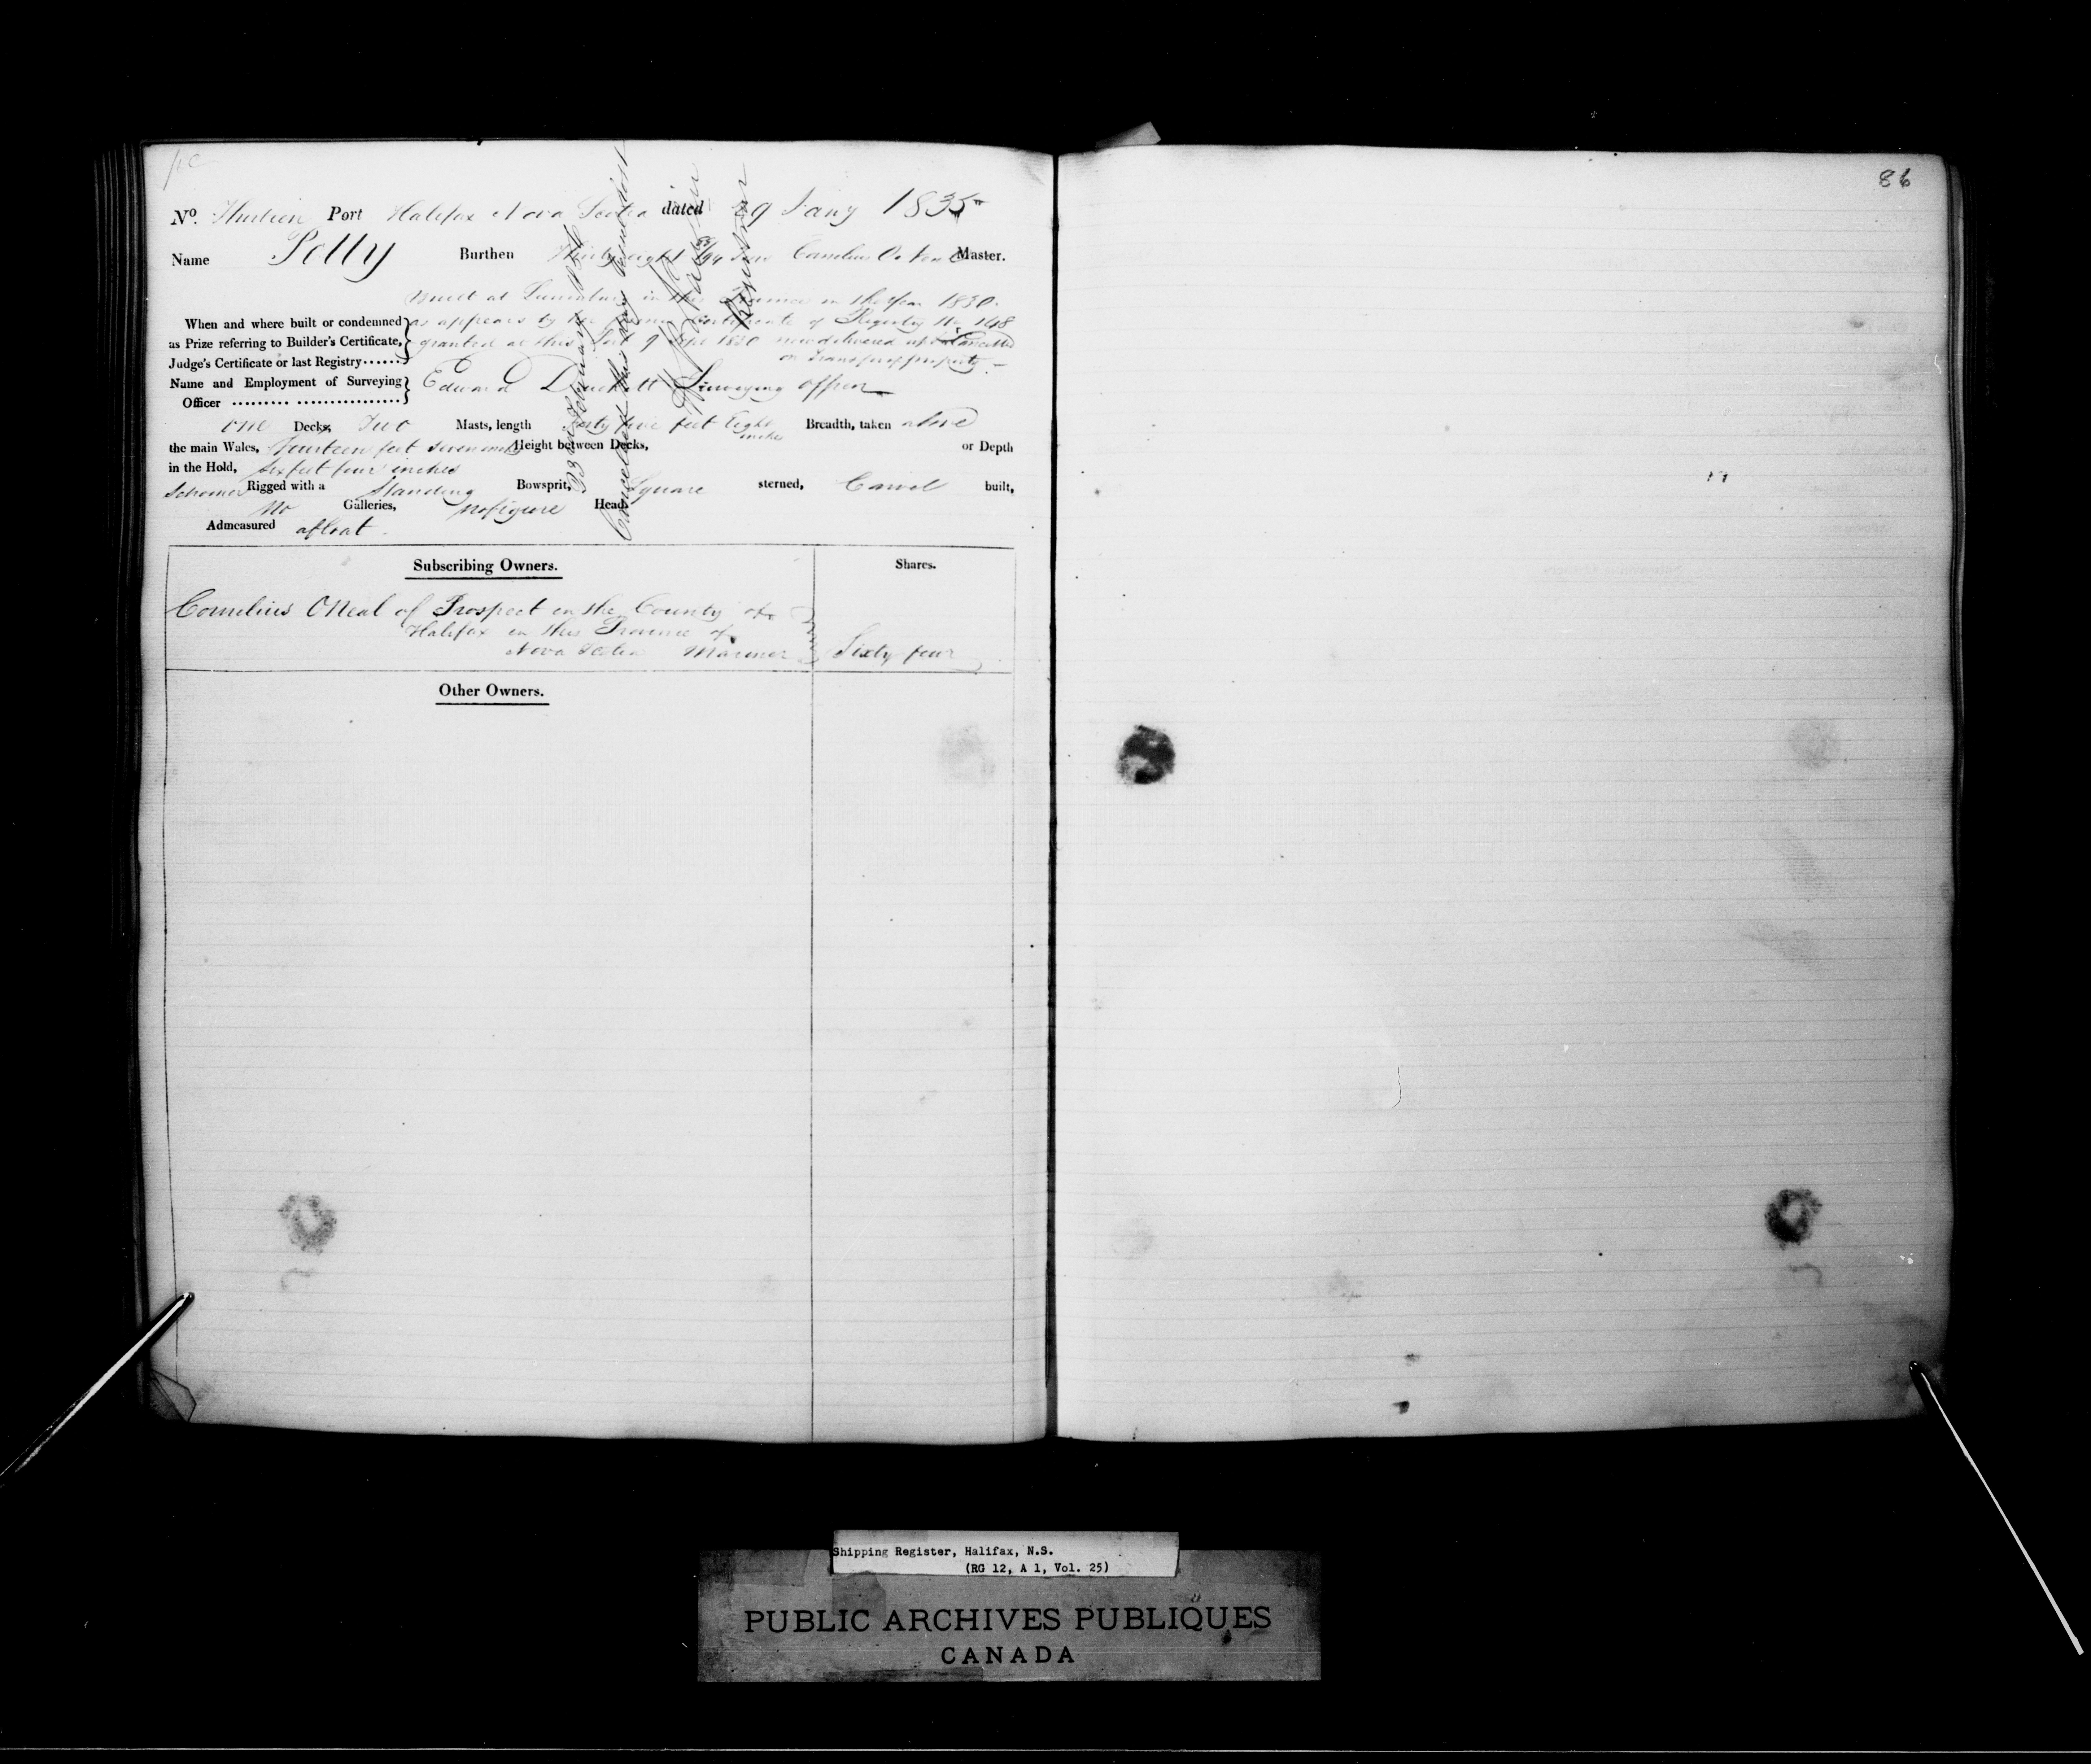 86
No. Thirteen Port Halifax Nova Scotia dated 29 Jany 1835
Name Polly Burthen Thirty eight /94 Tons Cornelius O'Neal Master.
Built at Lunenburg in this Province in the Year 1830.
When and where built or condemned as appears by her former Certificate of Registry No. 148
as Prize referring to Builder's Certificate, granted at this Port 9 Sept 1830 now delivered up & Cancelled
Judge's Certificate or last Registry...... on Transfer of property.—
Name and Employment of Surveying Edward Surveying officer
Officer ......... ................
one Decks, Two Masts, length Forty five feet Eight inches Breadth, taken above
the main Wales, fourteen feet seven inches Height between Decks, or Depth
in the Hold, six feet four inches
Schooner Rigged with a Standing Bowsprit, Square sterned, Carvel built,
No Galleries, no figure Head,
Admeasured afloat.
Cancelled this vessel lost
23rd February 1836
Registrar
Subscribing Owners. Shares.
Cornelius ONeal of Prospect in the County of
Halifax in this Province of
Nova Scotia Mariner Sixty four
Other Owners.
Shipping Register, Halifax, N.S.
(RG 12, A 1, Vol. 25)
PUBLIC ARCHIVES PUBLIQUES
CANADA